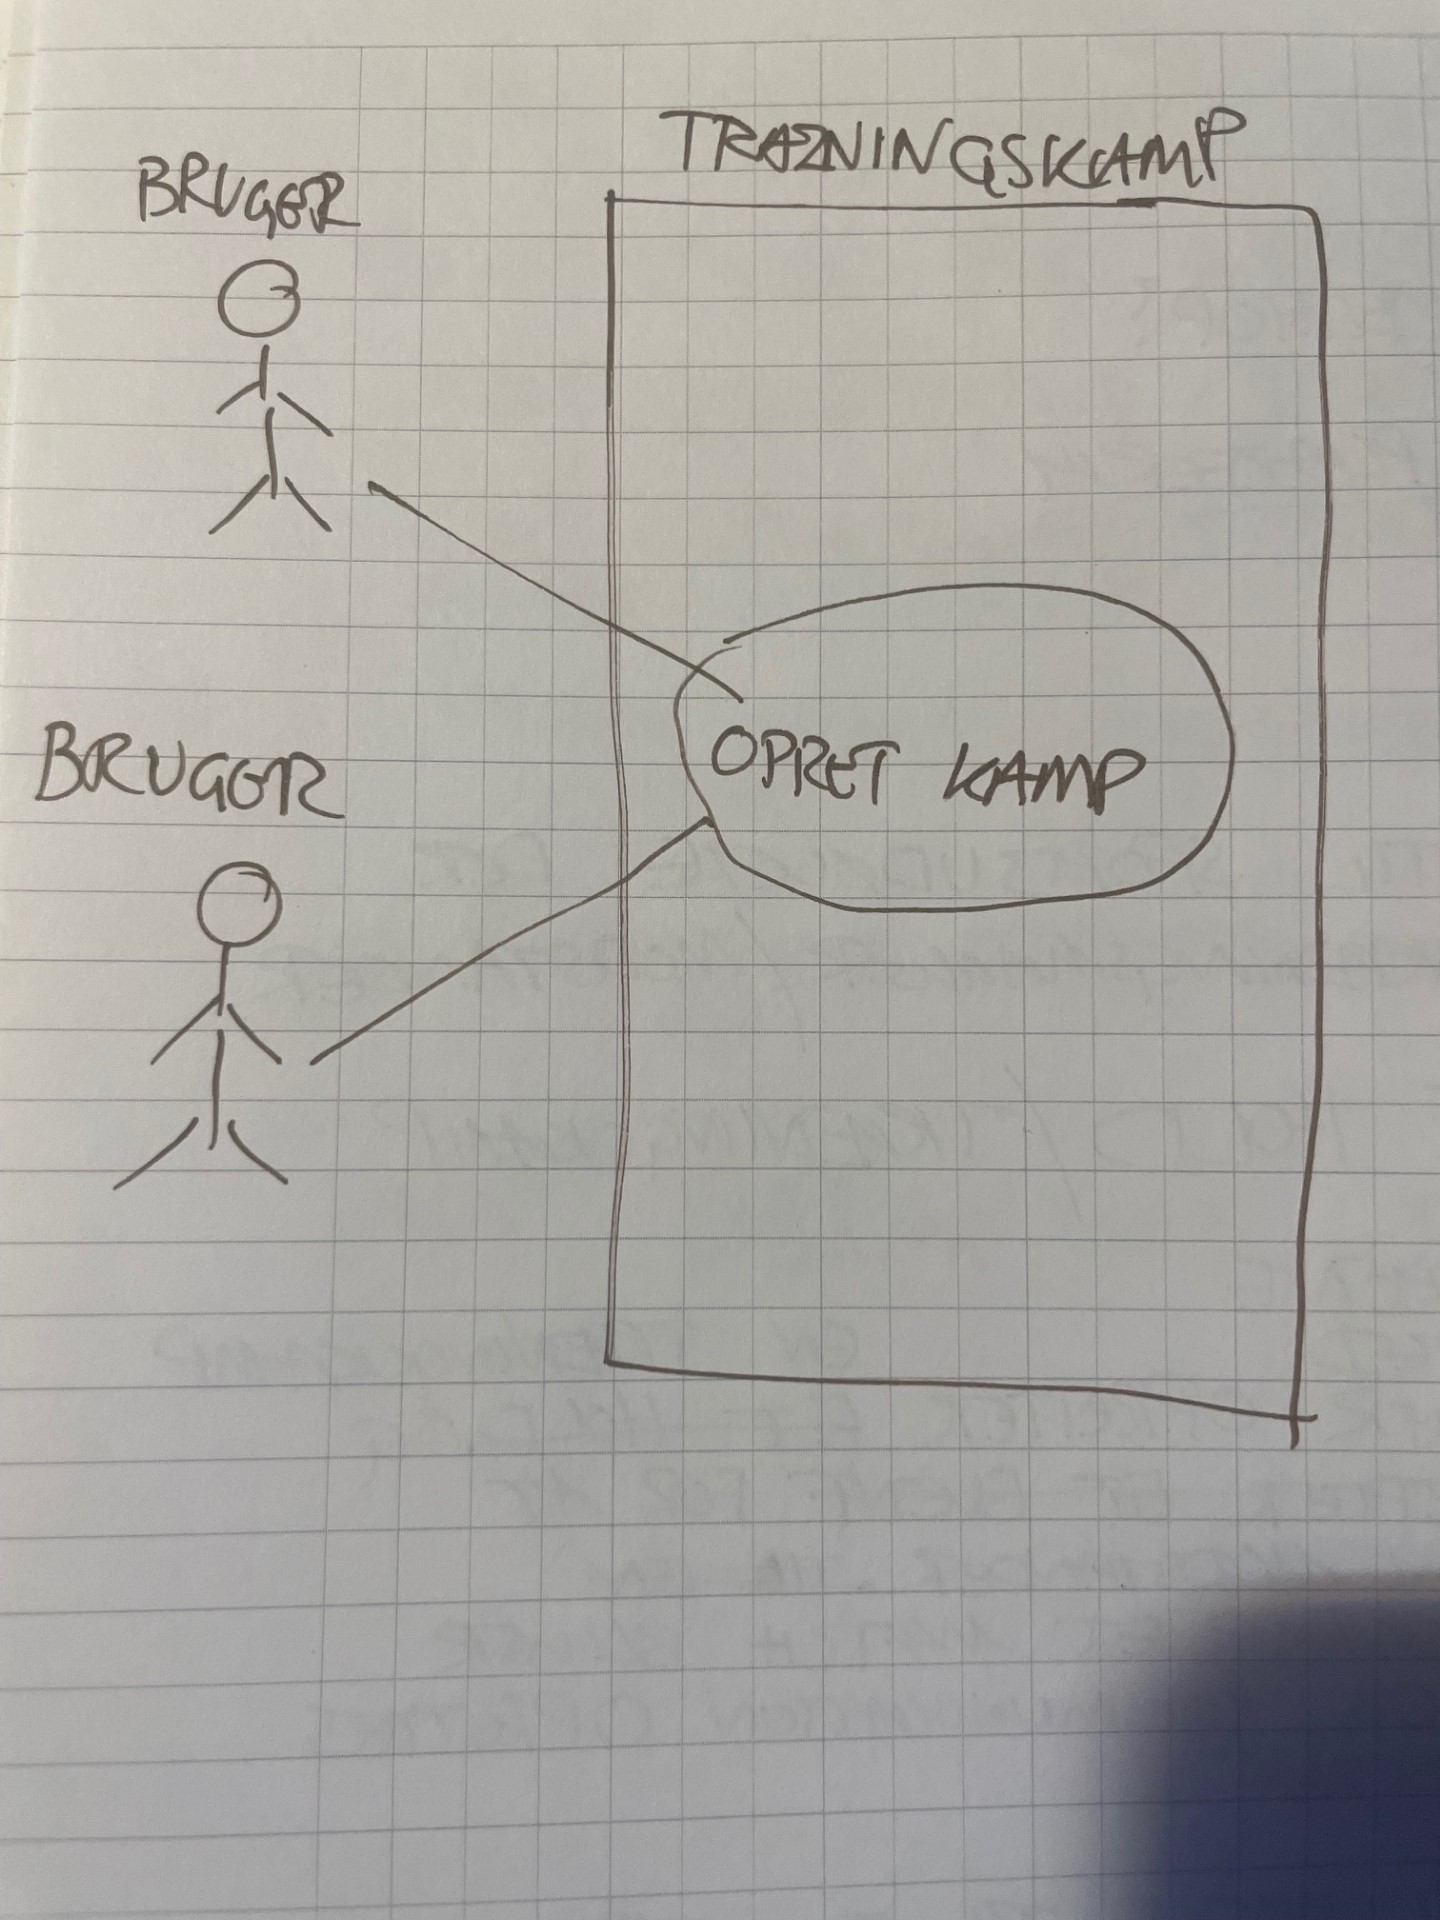 TRÆNINGSKAMP
BRUGER
BRUGER
OPRET KAMP